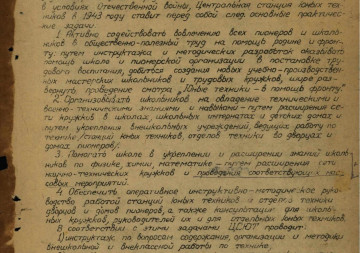 в условиях Отечественной войны, Центральная станция юных тех-
ников в 1943 году ставит перед собой след. основные практичес-
кие задачи
1. Активно содействовать вовлечению всех пионеров и школь-
ников в общественно-полезный труд на помощь родине и фрон-
ту: путем инструктажа и методических разработок оказывать
помощь школе и пионерской организации в постановке тру-
дового воспитания, добиться создания новых учебно-производствен-
ных мастерских школьников и трудовых кружков, шире раз-
вернуть проведение смотра "Юные техники - в помощь фронту"
2. Организовывать школьников на овладение техническими и
военно-техническими знаниями и навыками - путем расширения се-
ти кружков в школах, школьных интернатах и детских домах и
путем укрепления внешкольных учреждений, ведущих работу по
технике /станций юных техников, отделов техники во дворцах и
домах пионеров/.
3. Помогать школе в укреплении и расширении знаний школь-
ников по физике, химии, математике - путем расширения сети
научно-технических кружков и проведения соответствующих мас-
совых мероприятий.
4. Обеспечить оперативное инструктивно-методическое руко-
водство работой станций юных техников и отделов техники
дворцов и домов пионеров, а также консультации для школь-
ных кружков, руководителей их и для отдельных юных техников.
В соответствии с этими задачами ЦСЮТ проводит:
1) инструктаж по вопросам содержания, организации и методики
внешкольной и внеклассной работы по технике,